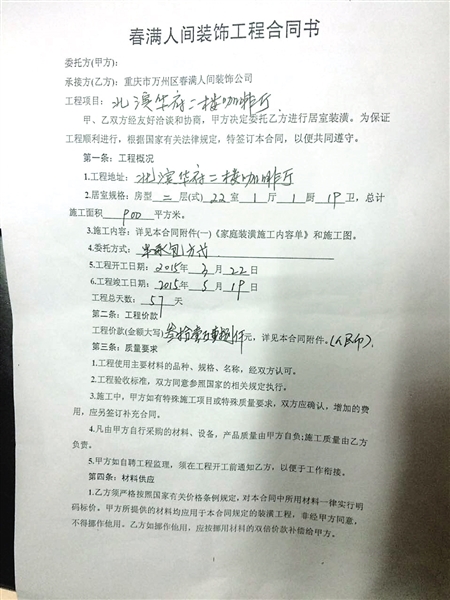 春满人间装饰工程合同书
委托方(甲方):
承接方(乙方): 重庆市万州区春满人间装饰公司
工程项目: 北滨华府二楼咖啡厅
甲、乙双方经友好洽谈和协商, 甲方决定委托乙方进行居室装潢。为保证
工程顺利进行, 根据国家有关法律规定, 特签订本合同, 以便共同遵守。
第一条: 工程概况
1.工程地址: 北滨华府二楼咖啡厅
2.居室规格: 房型 二 层(式) 22 室 1 厅 1 厨 1P 卫, 总计
施工面积 900 平方米。
3.施工内容: 详见本合同附件(一)《家庭装潢施工内容单》和施工图。
4.委托方式:
5.工程开工日期: 2015年 3 月 22 日
6.工程竣工日期: 2015年 5 月 19 日
工程总天数: 57 天
第二条: 工程价款
工程价款(金额大写) 元, 详见本合同附件。(人民币)
第三条: 质量要求
1.工程使用主要材料的品种、规格、名称, 经双方认可。
2.工程验收标准, 双方同意参照国家的相关规定执行。
3.施工中, 甲方如有特殊施工项目或特殊质量要求, 双方应确认, 增加的费
用, 应另签订补充合同。
4.凡由甲方自行采购的材料、设备, 产品质量由甲方自负; 施工质量由乙方
负责。
5.甲方如自聘工程监理, 须在工程开工前通知乙方, 以便于工作衔接。
第四条: 材料供应
1.乙方须严格按照国家有关价格条例规定, 对本合同中所用材料一律实行明
码标价。甲方所提供的材料均应用于本合同规定的装潢工程, 非经甲方同意,
不得挪作他用。乙方如挪作他用, 应按挪用材料的双倍价款补偿给甲方。
1